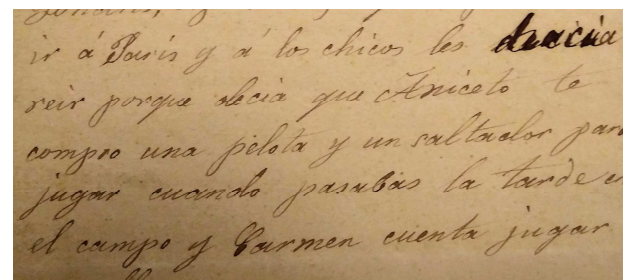 ir á Paris y á los chicos les
reir porque decia que Aniceto te
compro una pelota y un saltador para
jugar cuando pasabas la tarde e
el campo y Carmen cuenta jugar